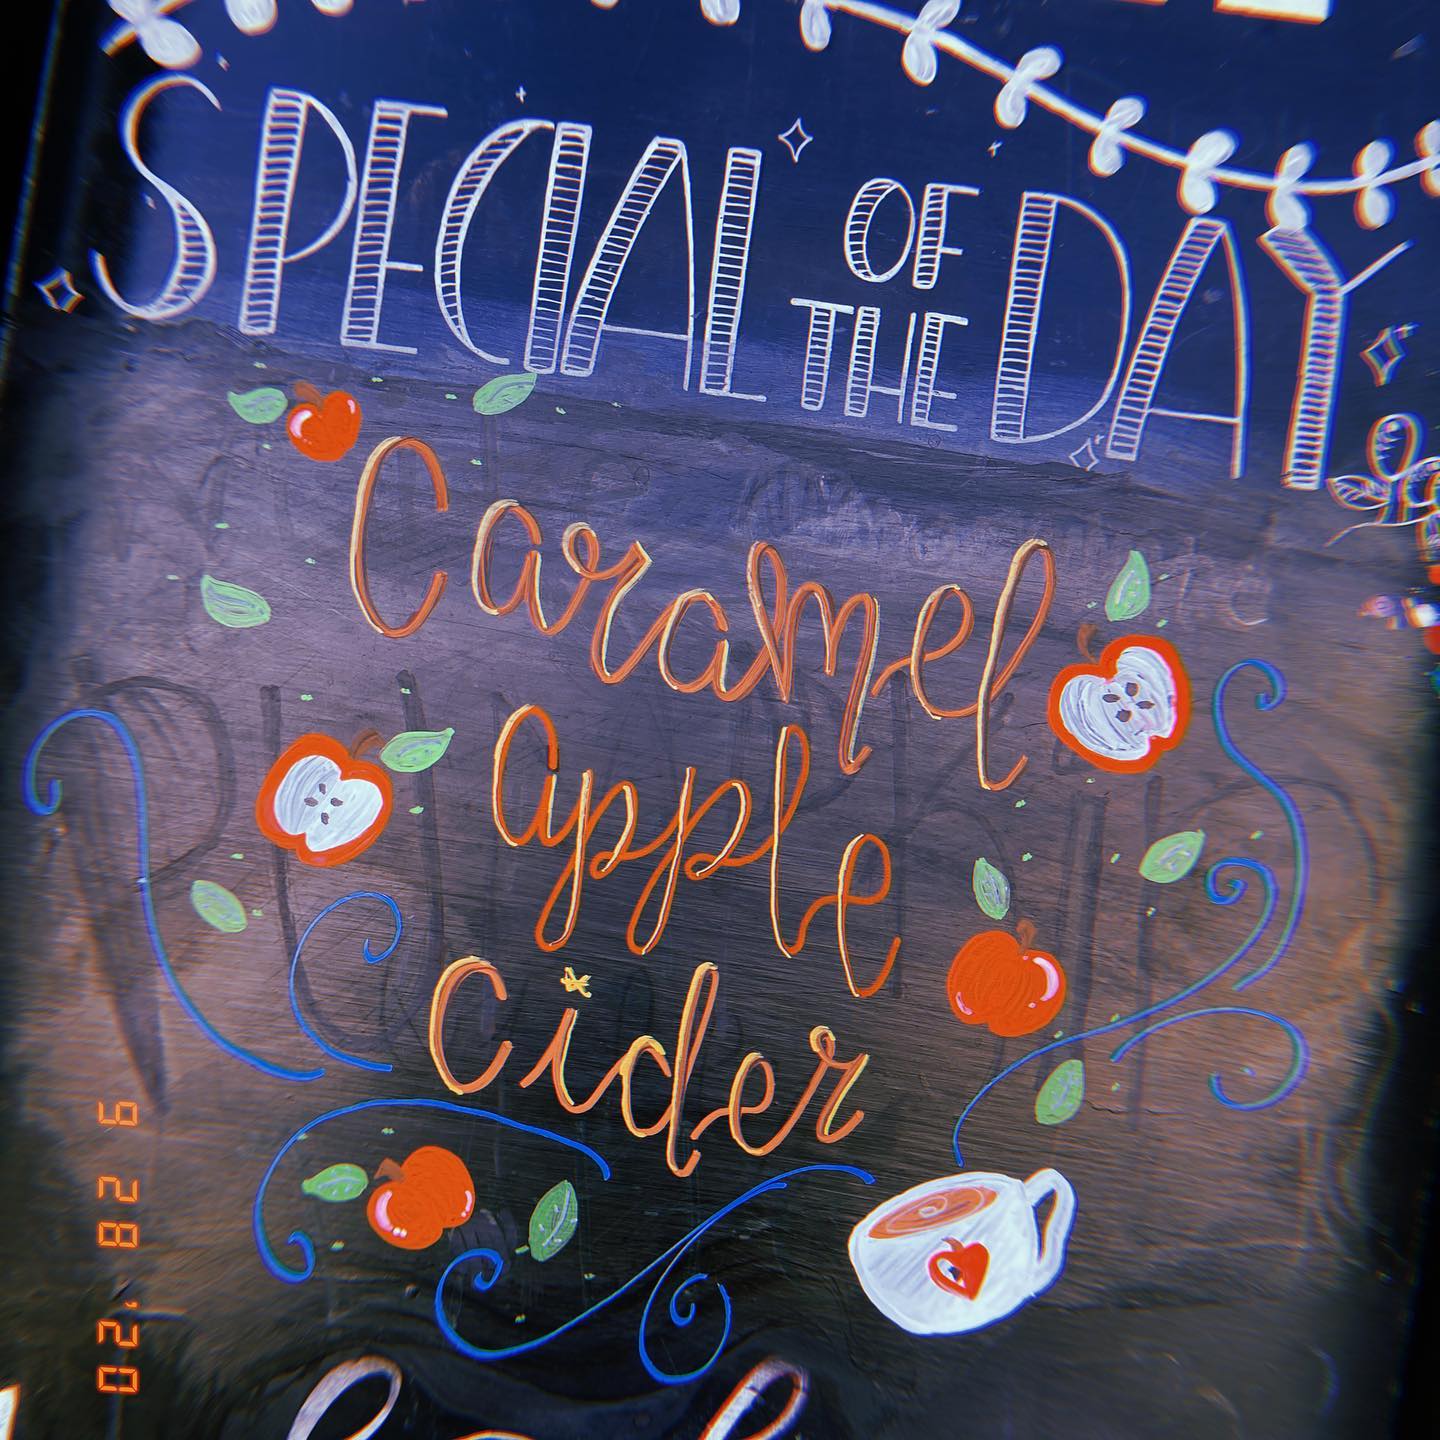 SPECIAL OF THE DAY
Caramel
apple
Cider
9 28 '20